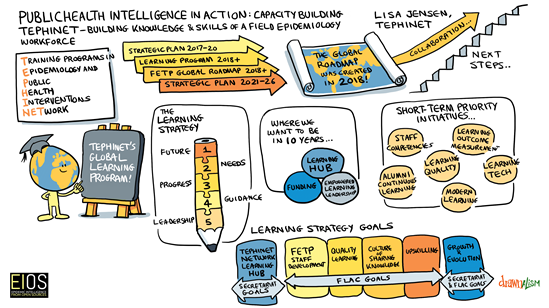 PUBLIC HEALTH INTELLIGENCE IN ACTION: CAPACITY BUILDING
TEPHINET - BUILDING KNOWLEDGE & SKILLS OF A FIELD EPIDEMIOLOGY
WORKFORCE
LISA JENSEN,
TEPHINET
TRAINING PROGRAMS IN
EPIDEMIOLOGY AND
PUBLIC
HEALTH
INTERVENTIONS
NETWORK
STRATEGIC PLAN 2017-20
LEARNING PROGRAM 2018+
FETP GLOBAL ROADMAP 2018+
STRATEGIC PLAN 2021-26
THE GLOBAL
ROADMAP
WAS CREATED
IN 2018!
COLLABORATION...
NEXT
STEPS..
TEPHINET'S
GLOBAL
LEARNING
PROGRAM!
THE
LEARNING STRATEGY
FUTURE
PROGRESS
LEADERSHIP
1
2
3
4
5
NEEDS
GUIDANCE
WHERE WE
WANT TO BE
IN 10 YEARS...
LEARNING
HUB
FUNDING
EMPOWERED
LEARNING
LEADERSHIP
SHORT-TERM PRIORITY
INITIATIVES...
STAFF
COMPETENCIES
LEARNING
OUTCOME
MEASUREMENT
LEARNING
QUALITY
LEARNING
TECH
ALUMNI
CONTINUOUS
LEARNING
MODERN
LEARNING
LEARNING STRATEGY GOALS
TEPHINET
NETWORK
LEARNING
HUB
SECRETARIAT
GOALS
FETP
STAFF
DEVELOPMENT
QUALITY LEARNING
CULTURE OF
SHARING
KNOWLEDGE
UPSKILLING
FLAC GOALS
GROWTH &
EVOLUTION
SECRETARIAT
& FLAC GOALS
EIOS
drawnalism